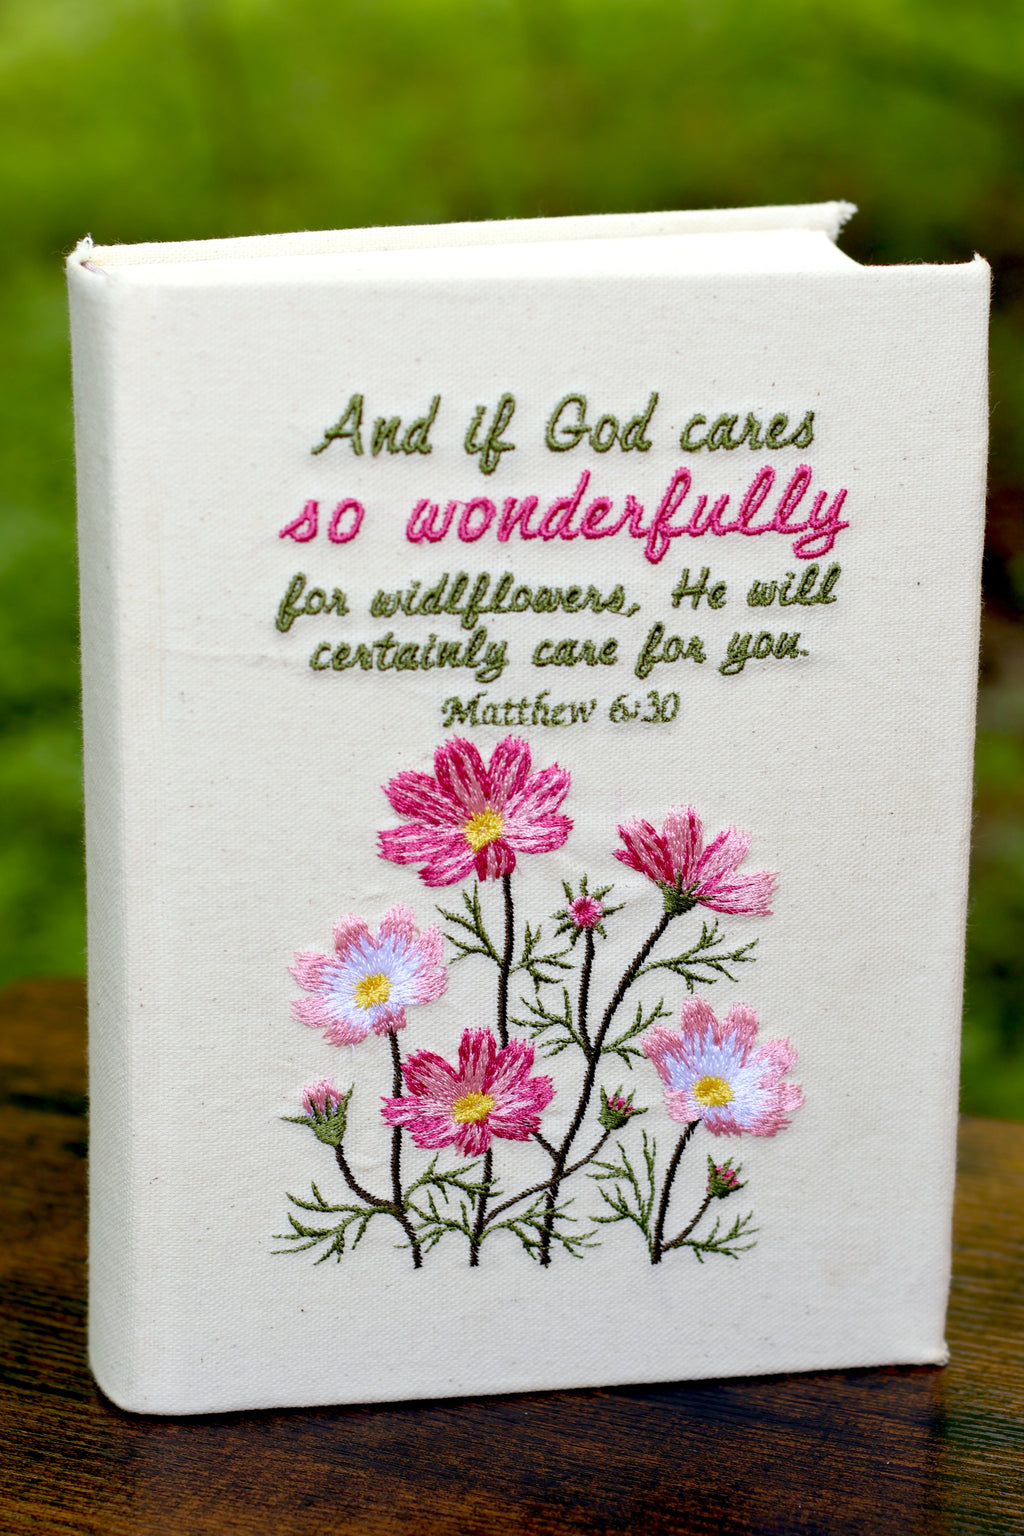 And if God cares
so wonderfully
for widlflowers, He will
certainly care for you.
Matthew 6:30